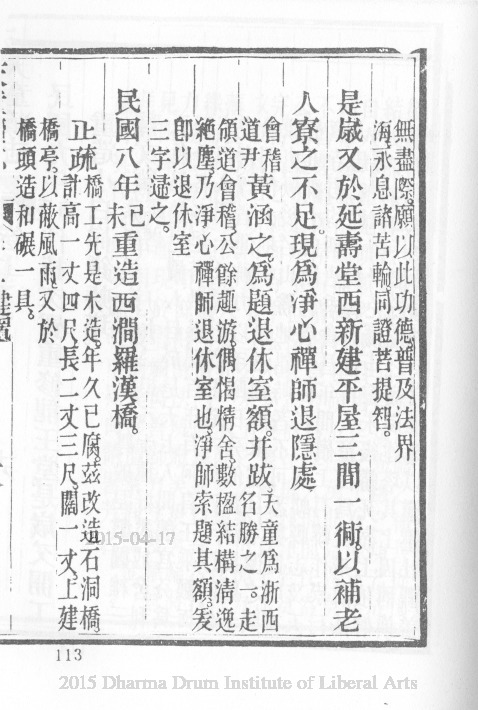 無盡際。願以此功德。普及法界
海。永息諸苦輪。同證菩提智。
是歲又於延壽堂西新建平屋三間一衖。以補老
人寮之不足。現為淨心禪師退隱處
會稽道尹黃涵之。為題退休室額。并跋 天童為浙西名勝之一。走
領道會稽。公餘趣游。偶憩精舍數楹結構清逸
絕塵。乃淨心禪師退休室也。淨師索題其額。爰
卽以退休室
三字遺之。
民國八年己未重造西澗羅漢橋。
正疏 橋工先是木造。年久已腐。茲改造石洞橋。
計高一丈四尺。長二丈三尺。闊一丈。上建
橋亭。以蔽風雨。又於
橋頭造和碾一具。
建置
113
2015-04-17
2015 Dharma Drum Institute of Liberal Arts